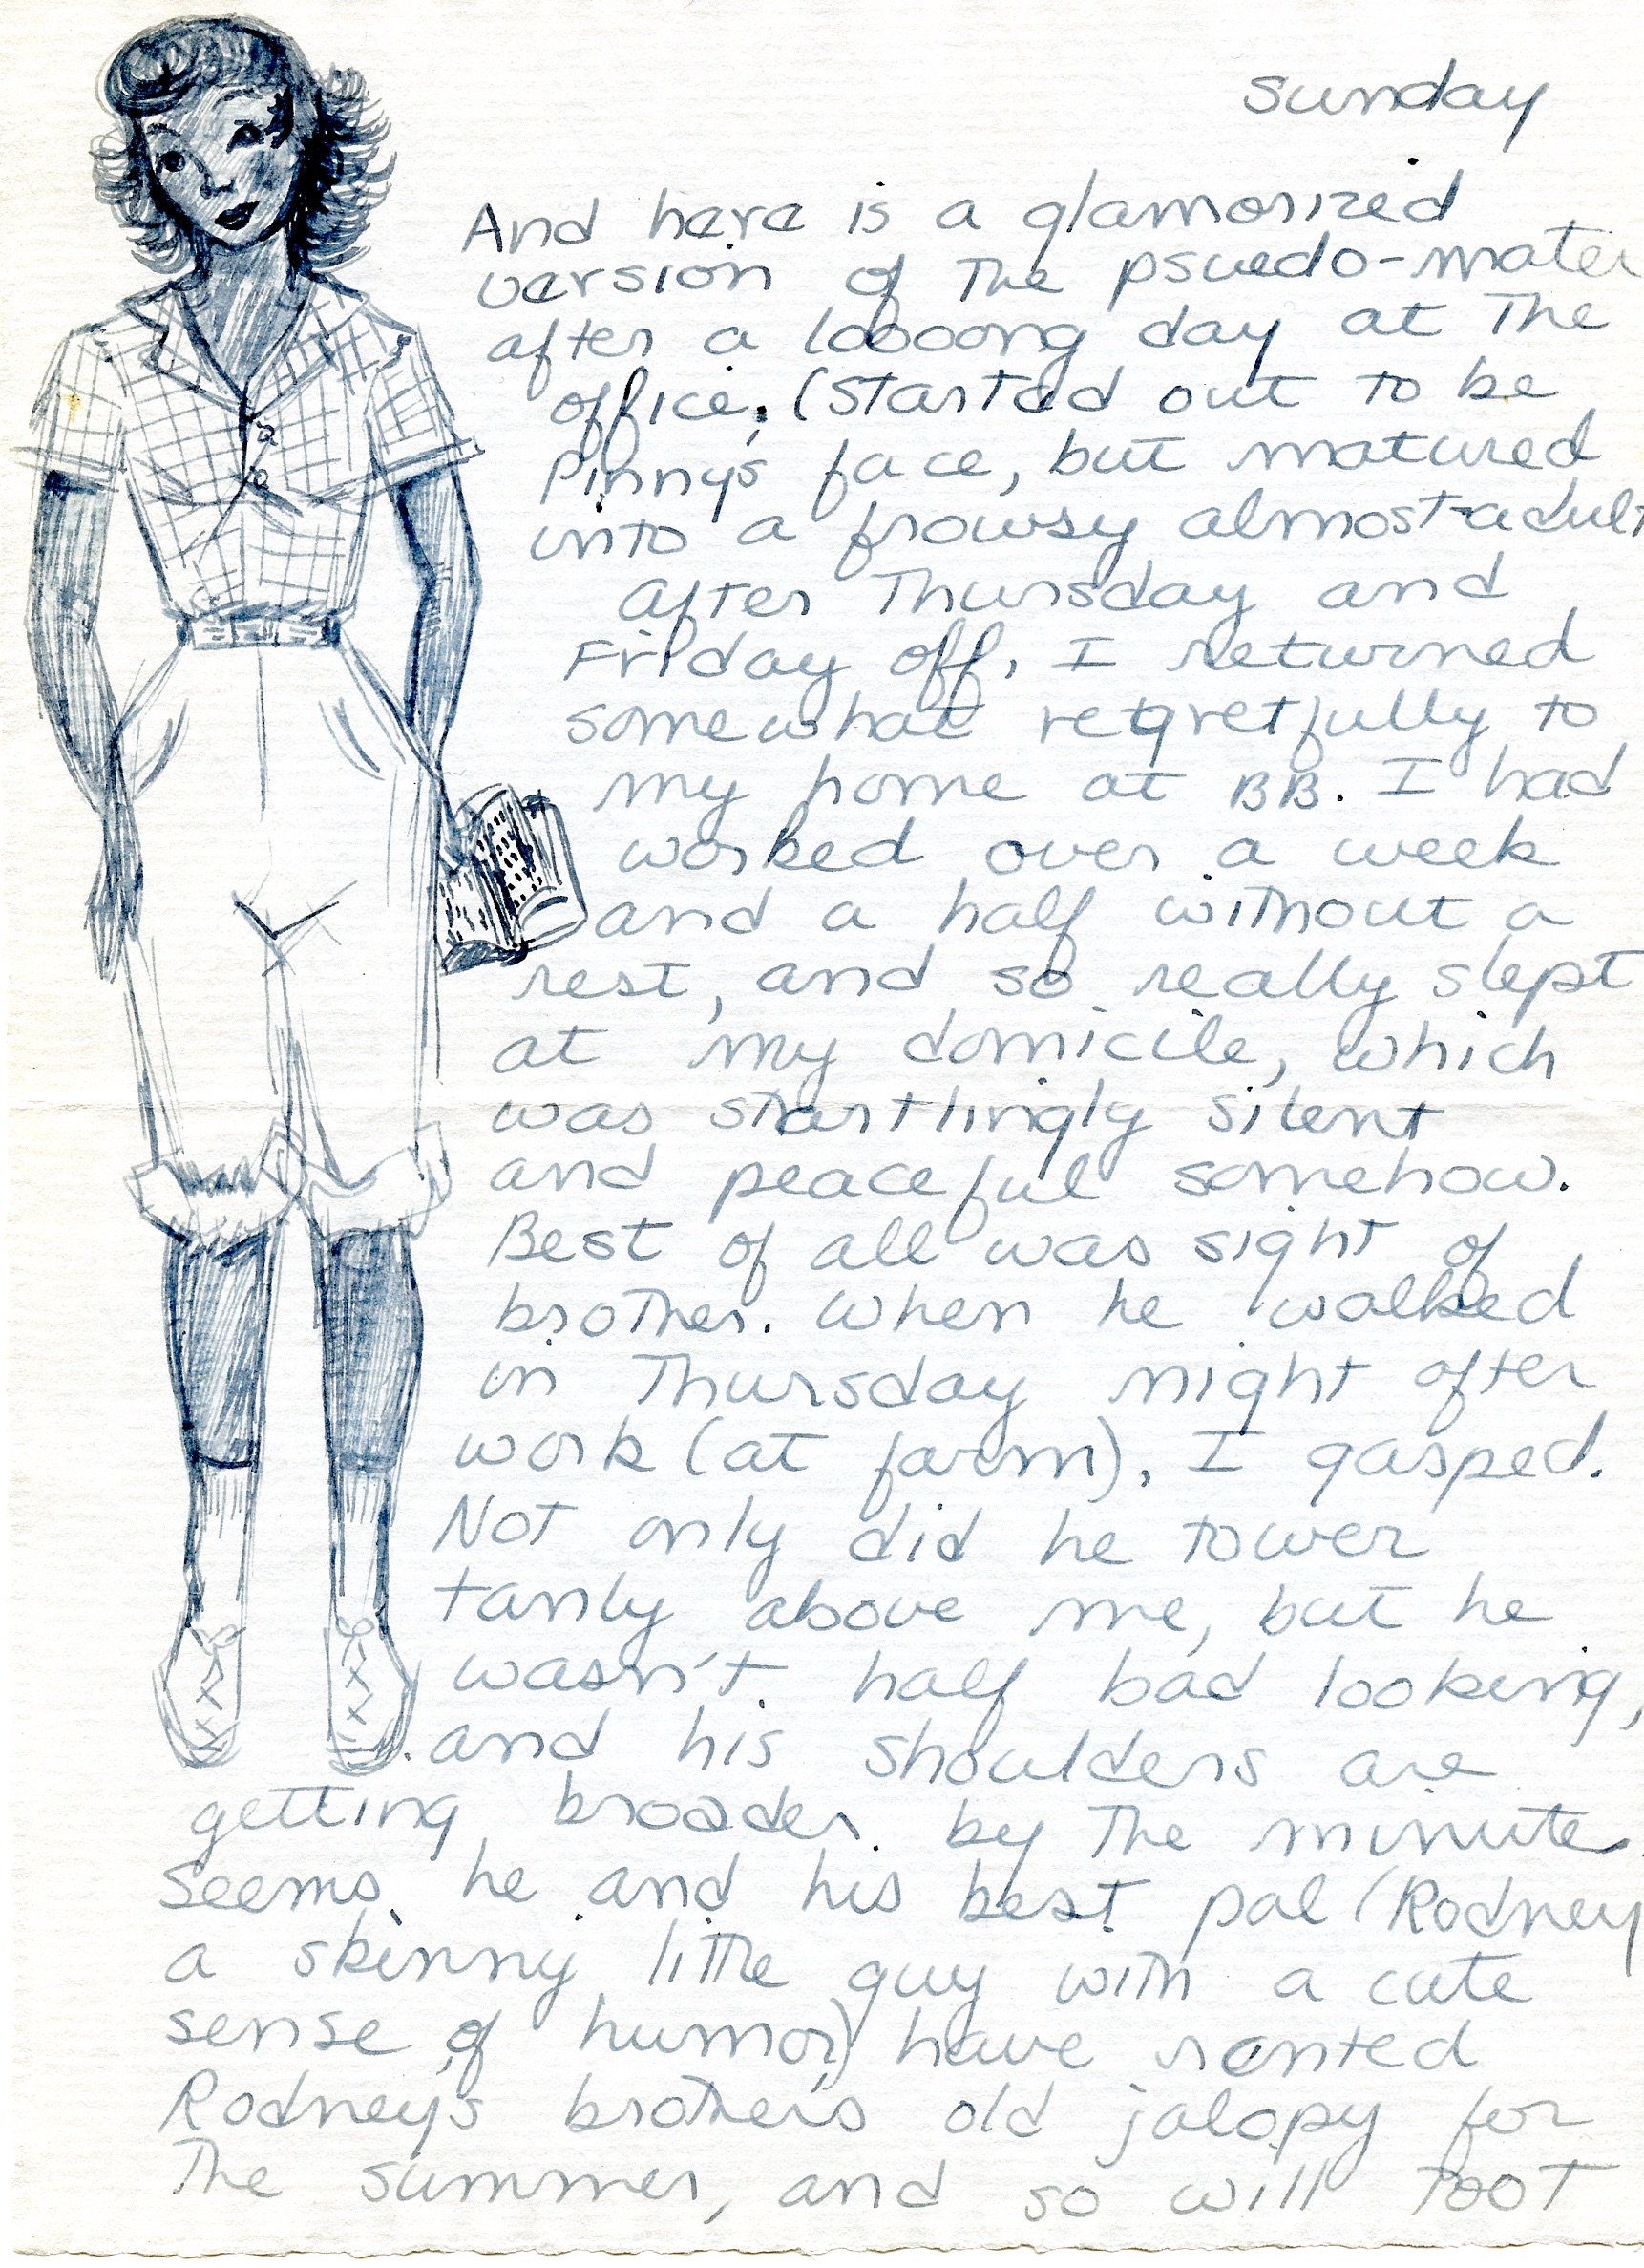 sunday
And here is a glamorized
version of the psuedo-mater
after a loooong day at the
office. (Started out to be
Pinny's face, but matured
into a frowsy almost-adult
After Thursday and
Friday off, I returned
somewhat regretfully to
my home at BB. I had
worked over a week
and a half without a
rest, and so really slept
at my domicile, which
was startlingly silent
and peaceful somehow.
Best of all was sight of
brother. When he walked
in Thursday night after
work (at farm), I gasped.
Not only did he tower
tanly above me, but he
wasn't half bad looking,
and his shoulders are
getting broader by the minute.
Seems he and his best pal (Rodney
a skinny little guy with a cute
sense of humor) have rented
Rodney's brother's old jalopy for
the summer, and so will toot